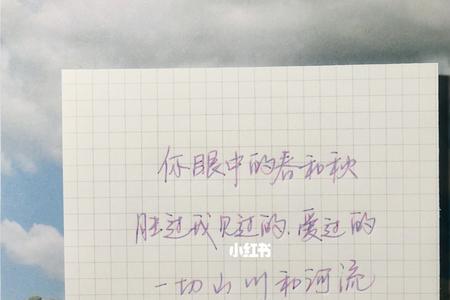 你眼中的春和秋
胜过我见过的.爱过的
小红书
一切山川和河流